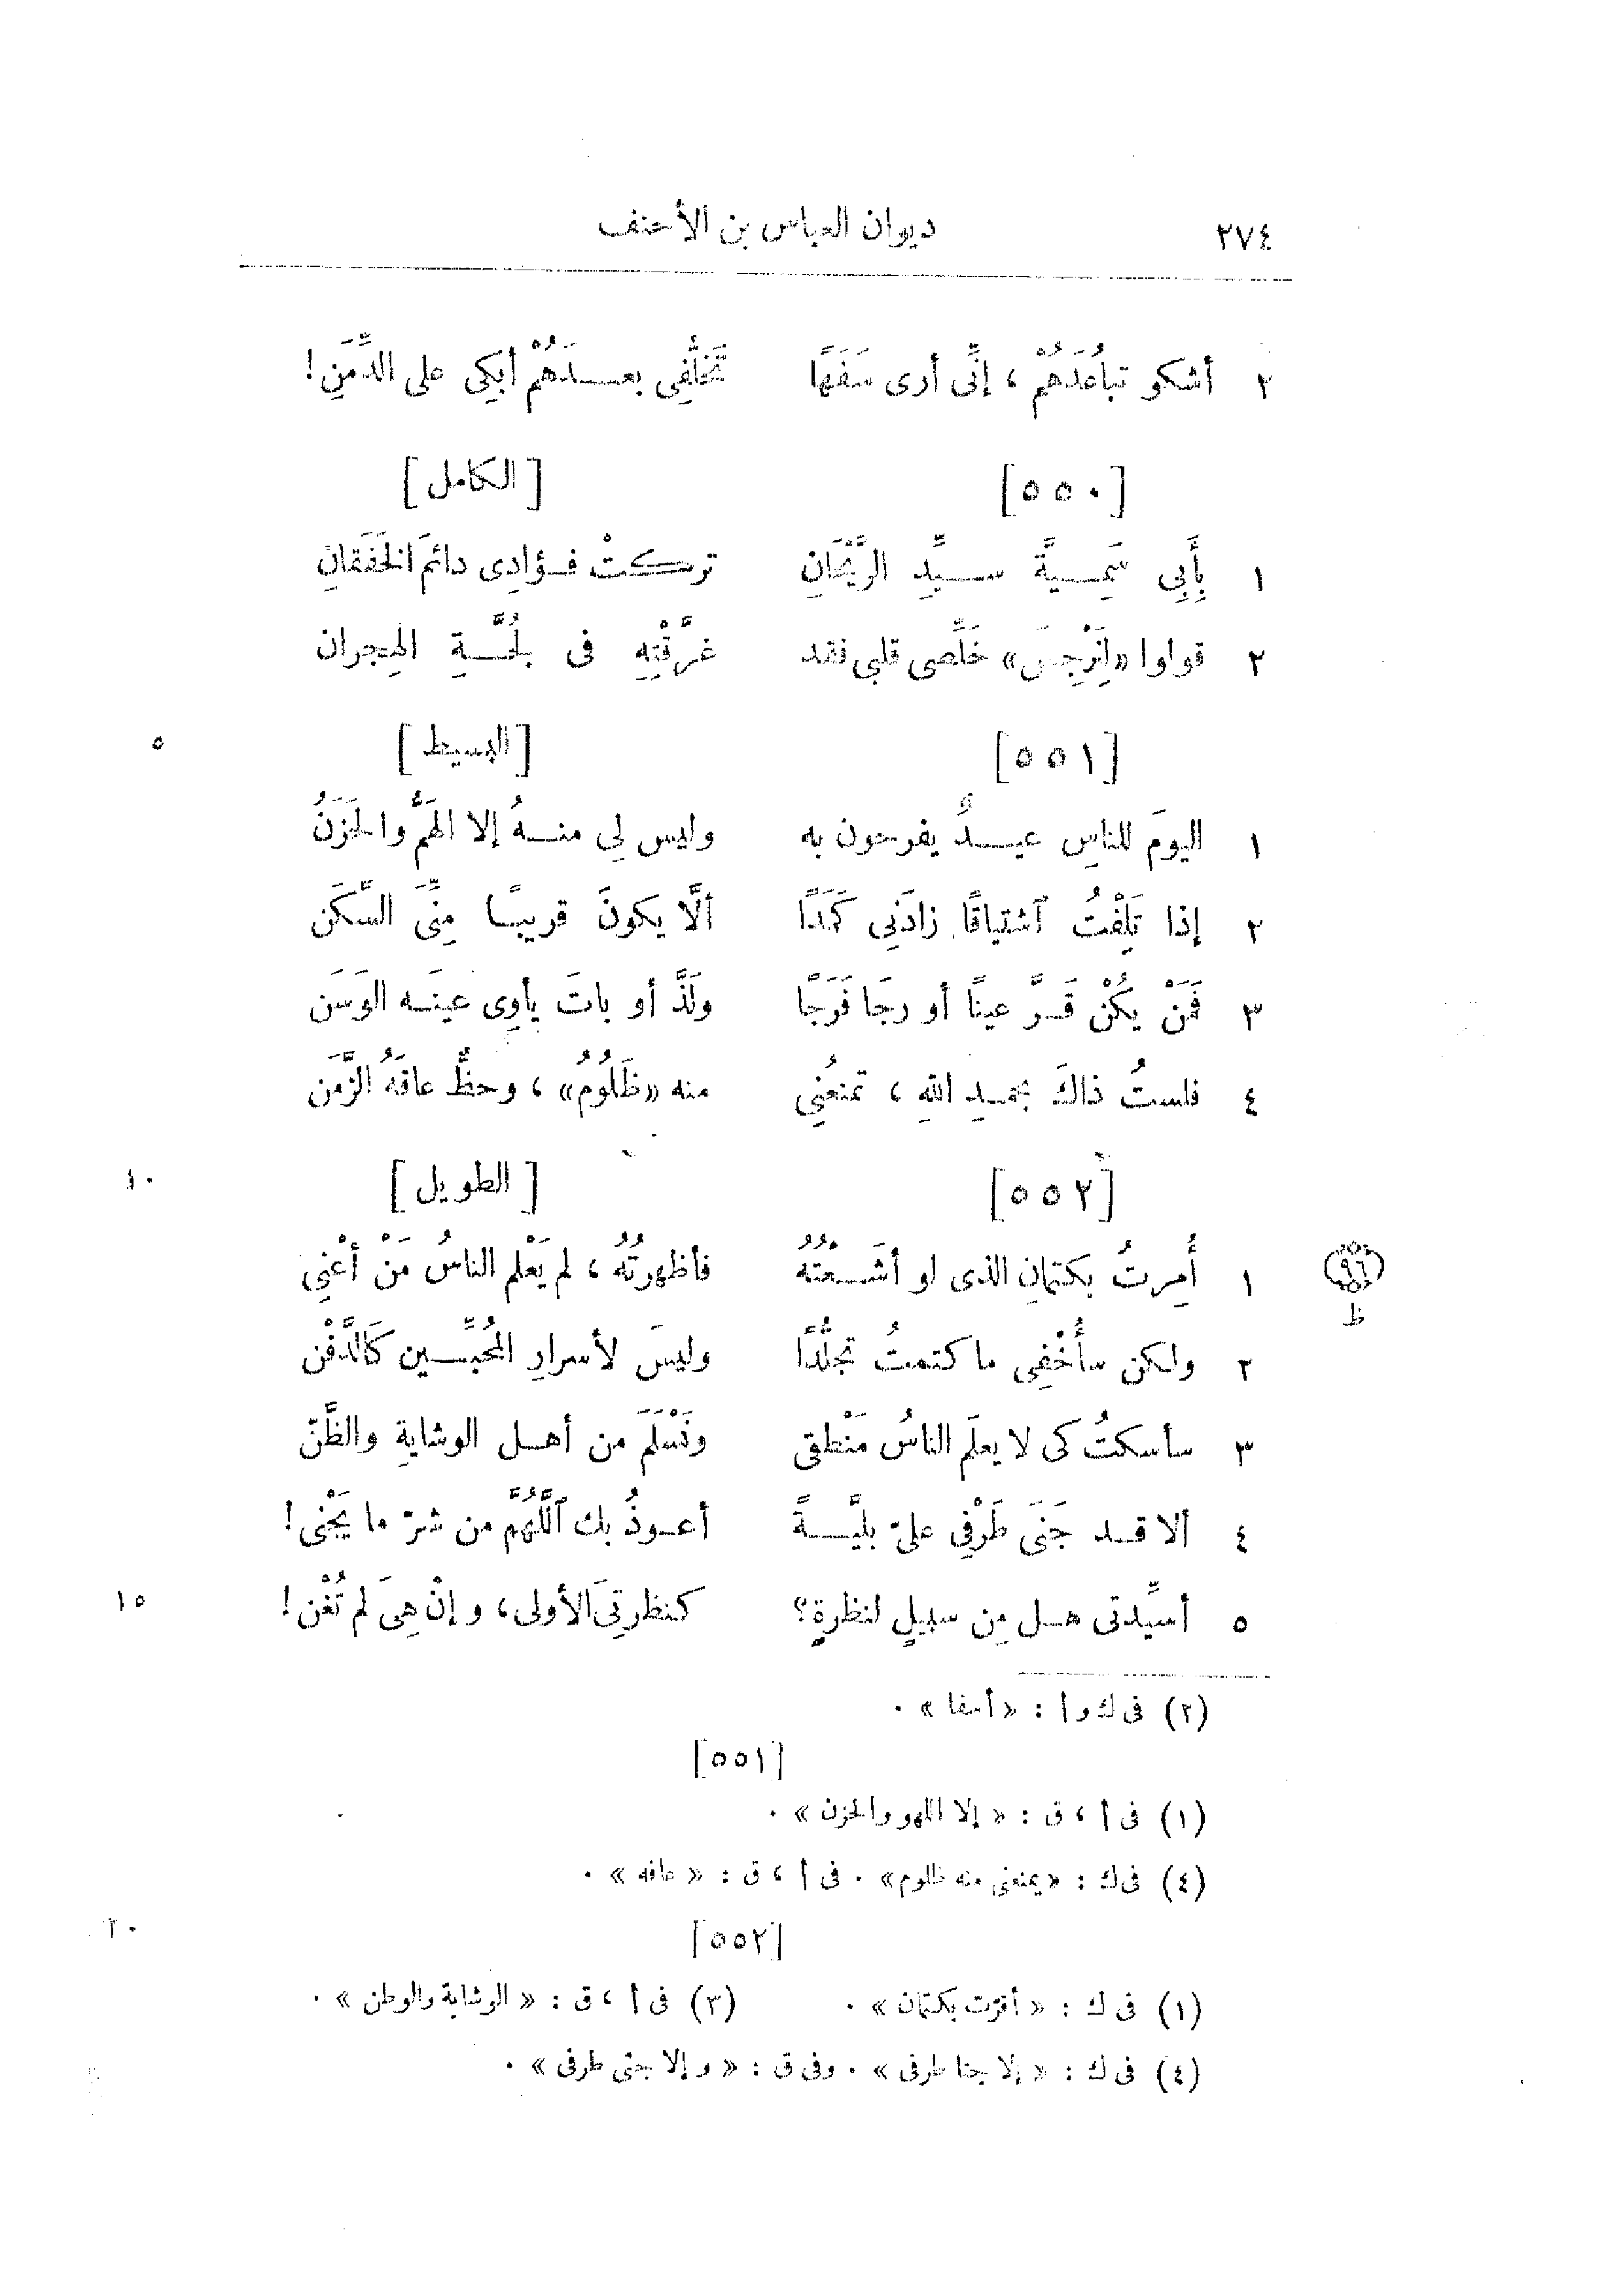 ٢٧٤ ديوان العباس بن الأحنف
٢ أشكو تباعُدَهُمْ ، إنِّى أرى سَفَهًا تَخَلُّفِى بعـدَهُمْ أبكِى على الدِّمَنِ!
[٥٥٠] [الكامل]
١ بِأَبِى سَمِـيَّةَ سـيِّدِ الرَّيْحَانِ تركتْ فـؤادِى دائمَ الخَفَقانِ
٢ قولوا «لِنَرْجِسَ» خَلِّصى قلبى فقد غرَّقْتِهِ فى لُجَّـةِ الهِجران
[٥٥١] [البسيط] ٥
١ اليومَ للناسِ عيـدٌ يفرحون به وليس لِى منـهُ إلا الهَمُّ والحَزَنُ
٢ إذا تَلِفْتُ آشتياقًا زادَنِى كَمَدًا ألَّا يكونَ قريبًا مِنِّىَ السَّكَن
٣ فَمَنْ يكُنْ قَـرَّ عينًا أو رجَا فَرَجًا ولَذَّ أو باتَ يأوِى عينَـه الوَسَن
٤ فلستُ ذاكَ بحمـدِ اللهِ ، تمنعُنِى منه «ظَلُومُ» ، وحظٌّ عافَهُ الزَّمَن
[٥٥٢] [الطويل] ١٠
١ أُمِرتُ بكتمانِ الذى لو أشَـعْتُهُ فأظهرتُهُ ، لم يَعْلم الناسُ مَنْ أعْنِى ٩٦
ظ
٢ ولكن سأُخْفِى ما كتمتُ تجلُّدًا وليسَ لأسرارِ المُحبِّـين كَالدَّفْن
٣ سأسكتُ كى لا يعلَم الناسُ مَنْطقى ونَسْلَمَ من أهـل الوشايةِ والظَّنّ
٤ ألا قـد جَنَى طَرْفِى علىّ بليَّـةً أعـوذُ بك آللّهُمَّ من شرّ ما يَجْنى!
٥ أسيِّدتى هـل مِن سبيلٍ لنظرةٍ؟ كنظرتِىَ الأولى، وإنْ هِىَ لم تُغْن! ١٥
(٢) فى ك وأ : «أسفا» .
[٥٥١]
(١) فى أ ، ق : «إلا اللهو والحزن» .
(٤) فى ك : «يمنعنى منه ظلوم» . فى أ ، ق : «عافه» .
[٥٥٢] ٢٠
(١) فى ك : «أقرّت بكتمان» . (٣) فى أ ، ق : «الوشاية والوطن» .
(٤) فى ك : «إلا جنا طرفى» . وفى ق : «وإلا جنى طرفى» .